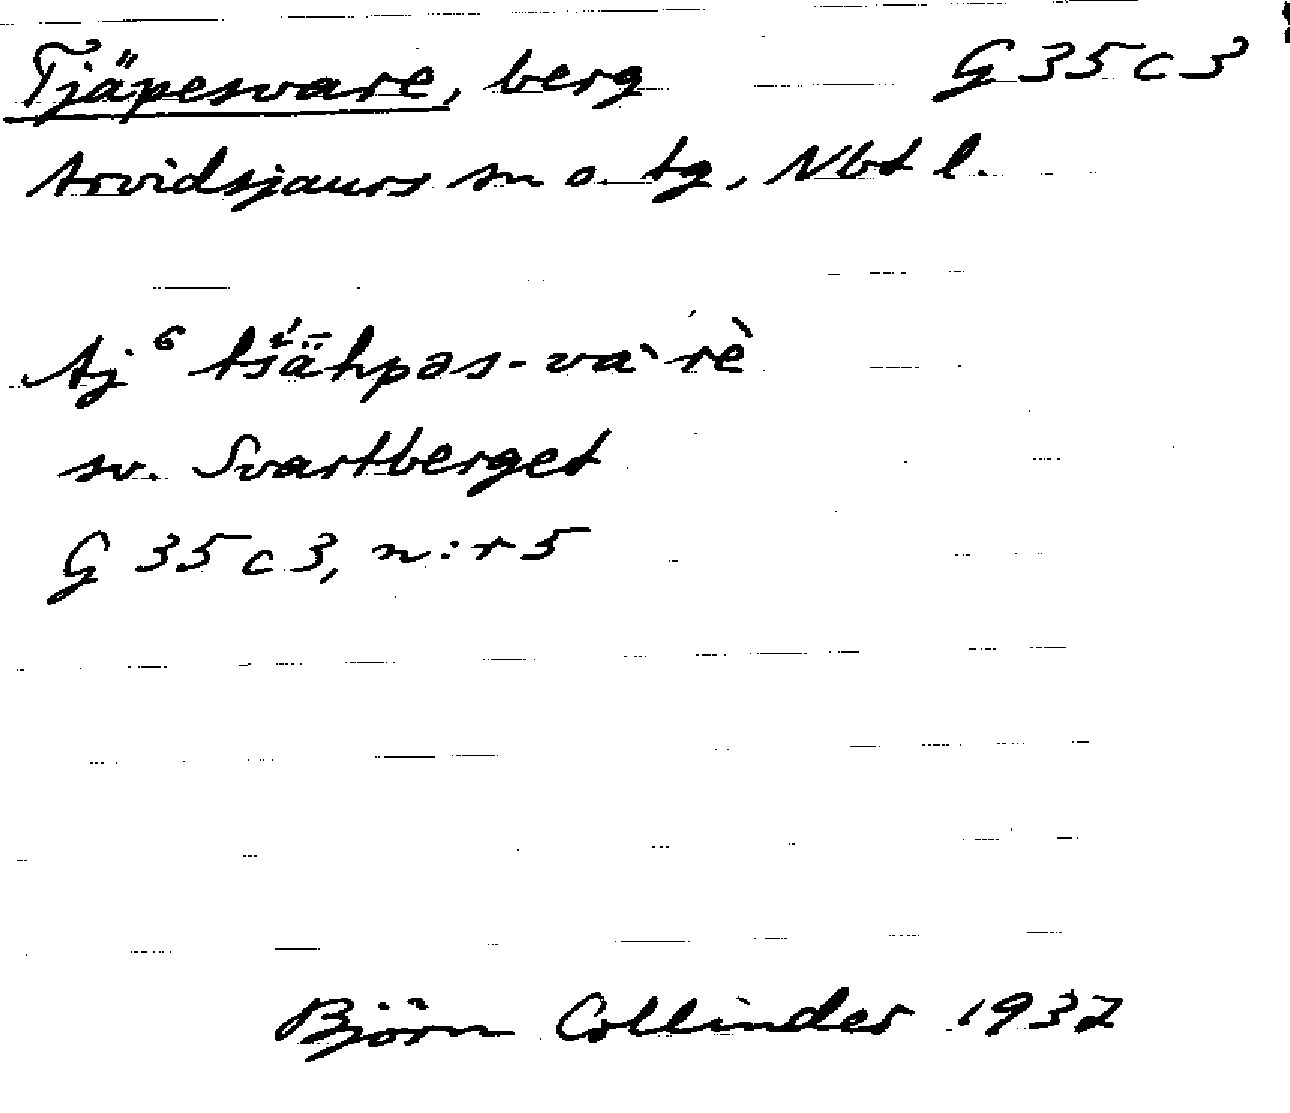 Tjäpesvare, berg G 35 c 3
Arvidsjaurs sn o. tg, Nbt l.
Aj⁶ tsǟhpəs-va`rè
sv. Svartberget
G 35 c 3, n:r 5
Björn Collinder 1932